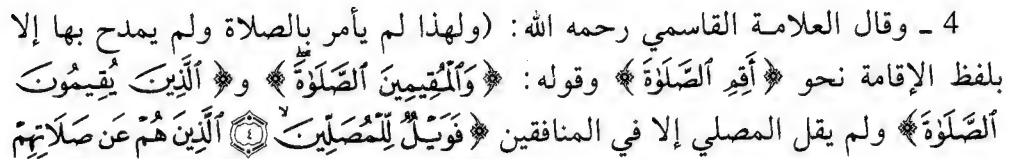 4 ـ وقال العلامـة القاسمي رحمه الله: (ولهذا لم يأمر بالصلاة ولم يمدح بها إلا
بلفظ الإقامة نحو ﴿أَقِمِ ٱلصَّلَوٰةَ﴾ وقوله: ﴿وَٱلْمُقِيمِينَ ٱلصَّلَوٰةَۚ﴾ و﴿ٱلَّذِينَ يُقِيمُونَ
ٱلصَّلَوٰةَ﴾ ولم يقل المصلي إلا في المنافقين ﴿فَوَيْلٌ لِّلْمُصَلِّينَۙ ٤ ٱلَّذِينَ هُمْ عَن صَلَاتِهِمْ